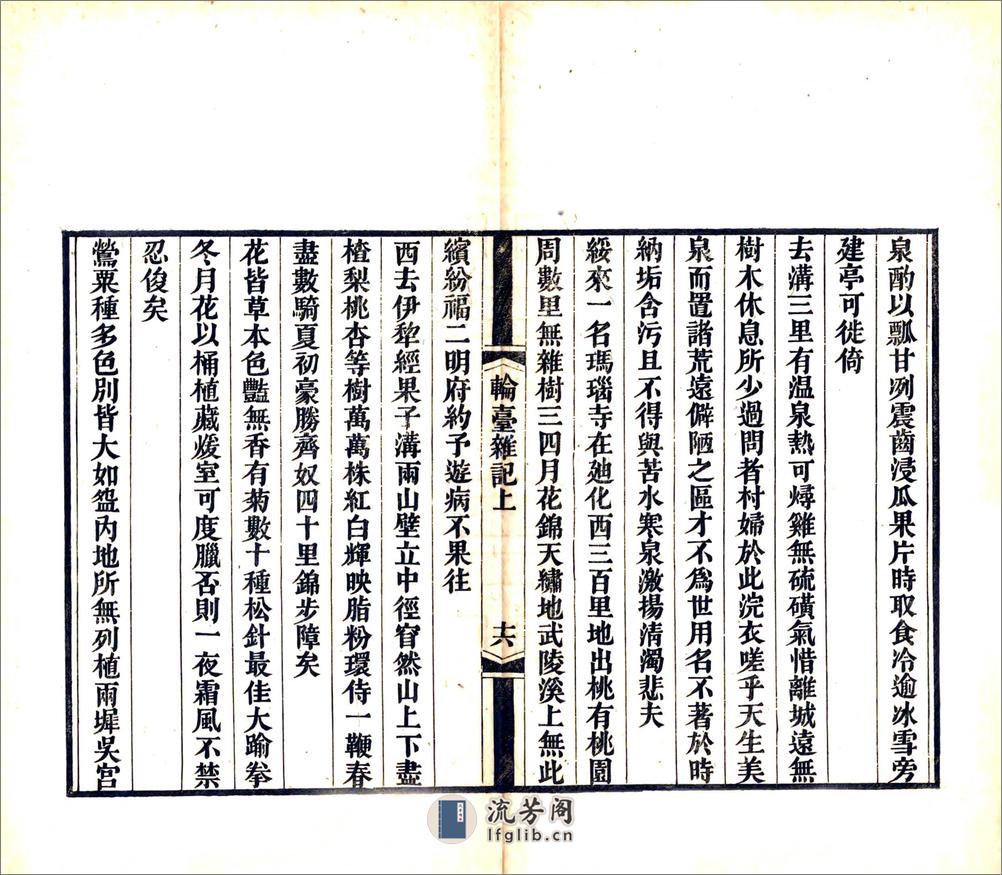 泉酌以瓢甘冽震齒浸瓜果片時取食冷逾冰雪旁
建亭可徙倚
去溝三里有温泉熱可燖雞無硫磺氣惜離城遠無
樹木休息所少過問者村婦於此浣衣嗟乎天生美
泉而置諸荒遠僻陋之區才不爲世用名不著於時
納垢含污且不得與苦水寒泉激揚淸濁悲夫
綏來一名瑪瑙寺在廸化西三百里地出桃有桃園
周數里無雜樹三四月花錦天繡地武陵溪上無此
輪臺雜記上
十六
繽紛福二明府約予遊病不果往
西去伊犂經果子溝兩山壁立中徑窅然山上下盡
樝梨桃杏等樹萬萬株紅白輝映脂粉環侍一鞭春
盡數騎夏初豪勝齊奴四十里錦步障矣
花皆草本色豔無香有菊數十種松針最佳大踰拳
冬月花以桶植藏煖室可度臘否則一夜霜風不禁
忍俊矣
鶯粟種多色別皆大如盌內地所無列植兩墀吳宫
流芳阁
lfglib.cn